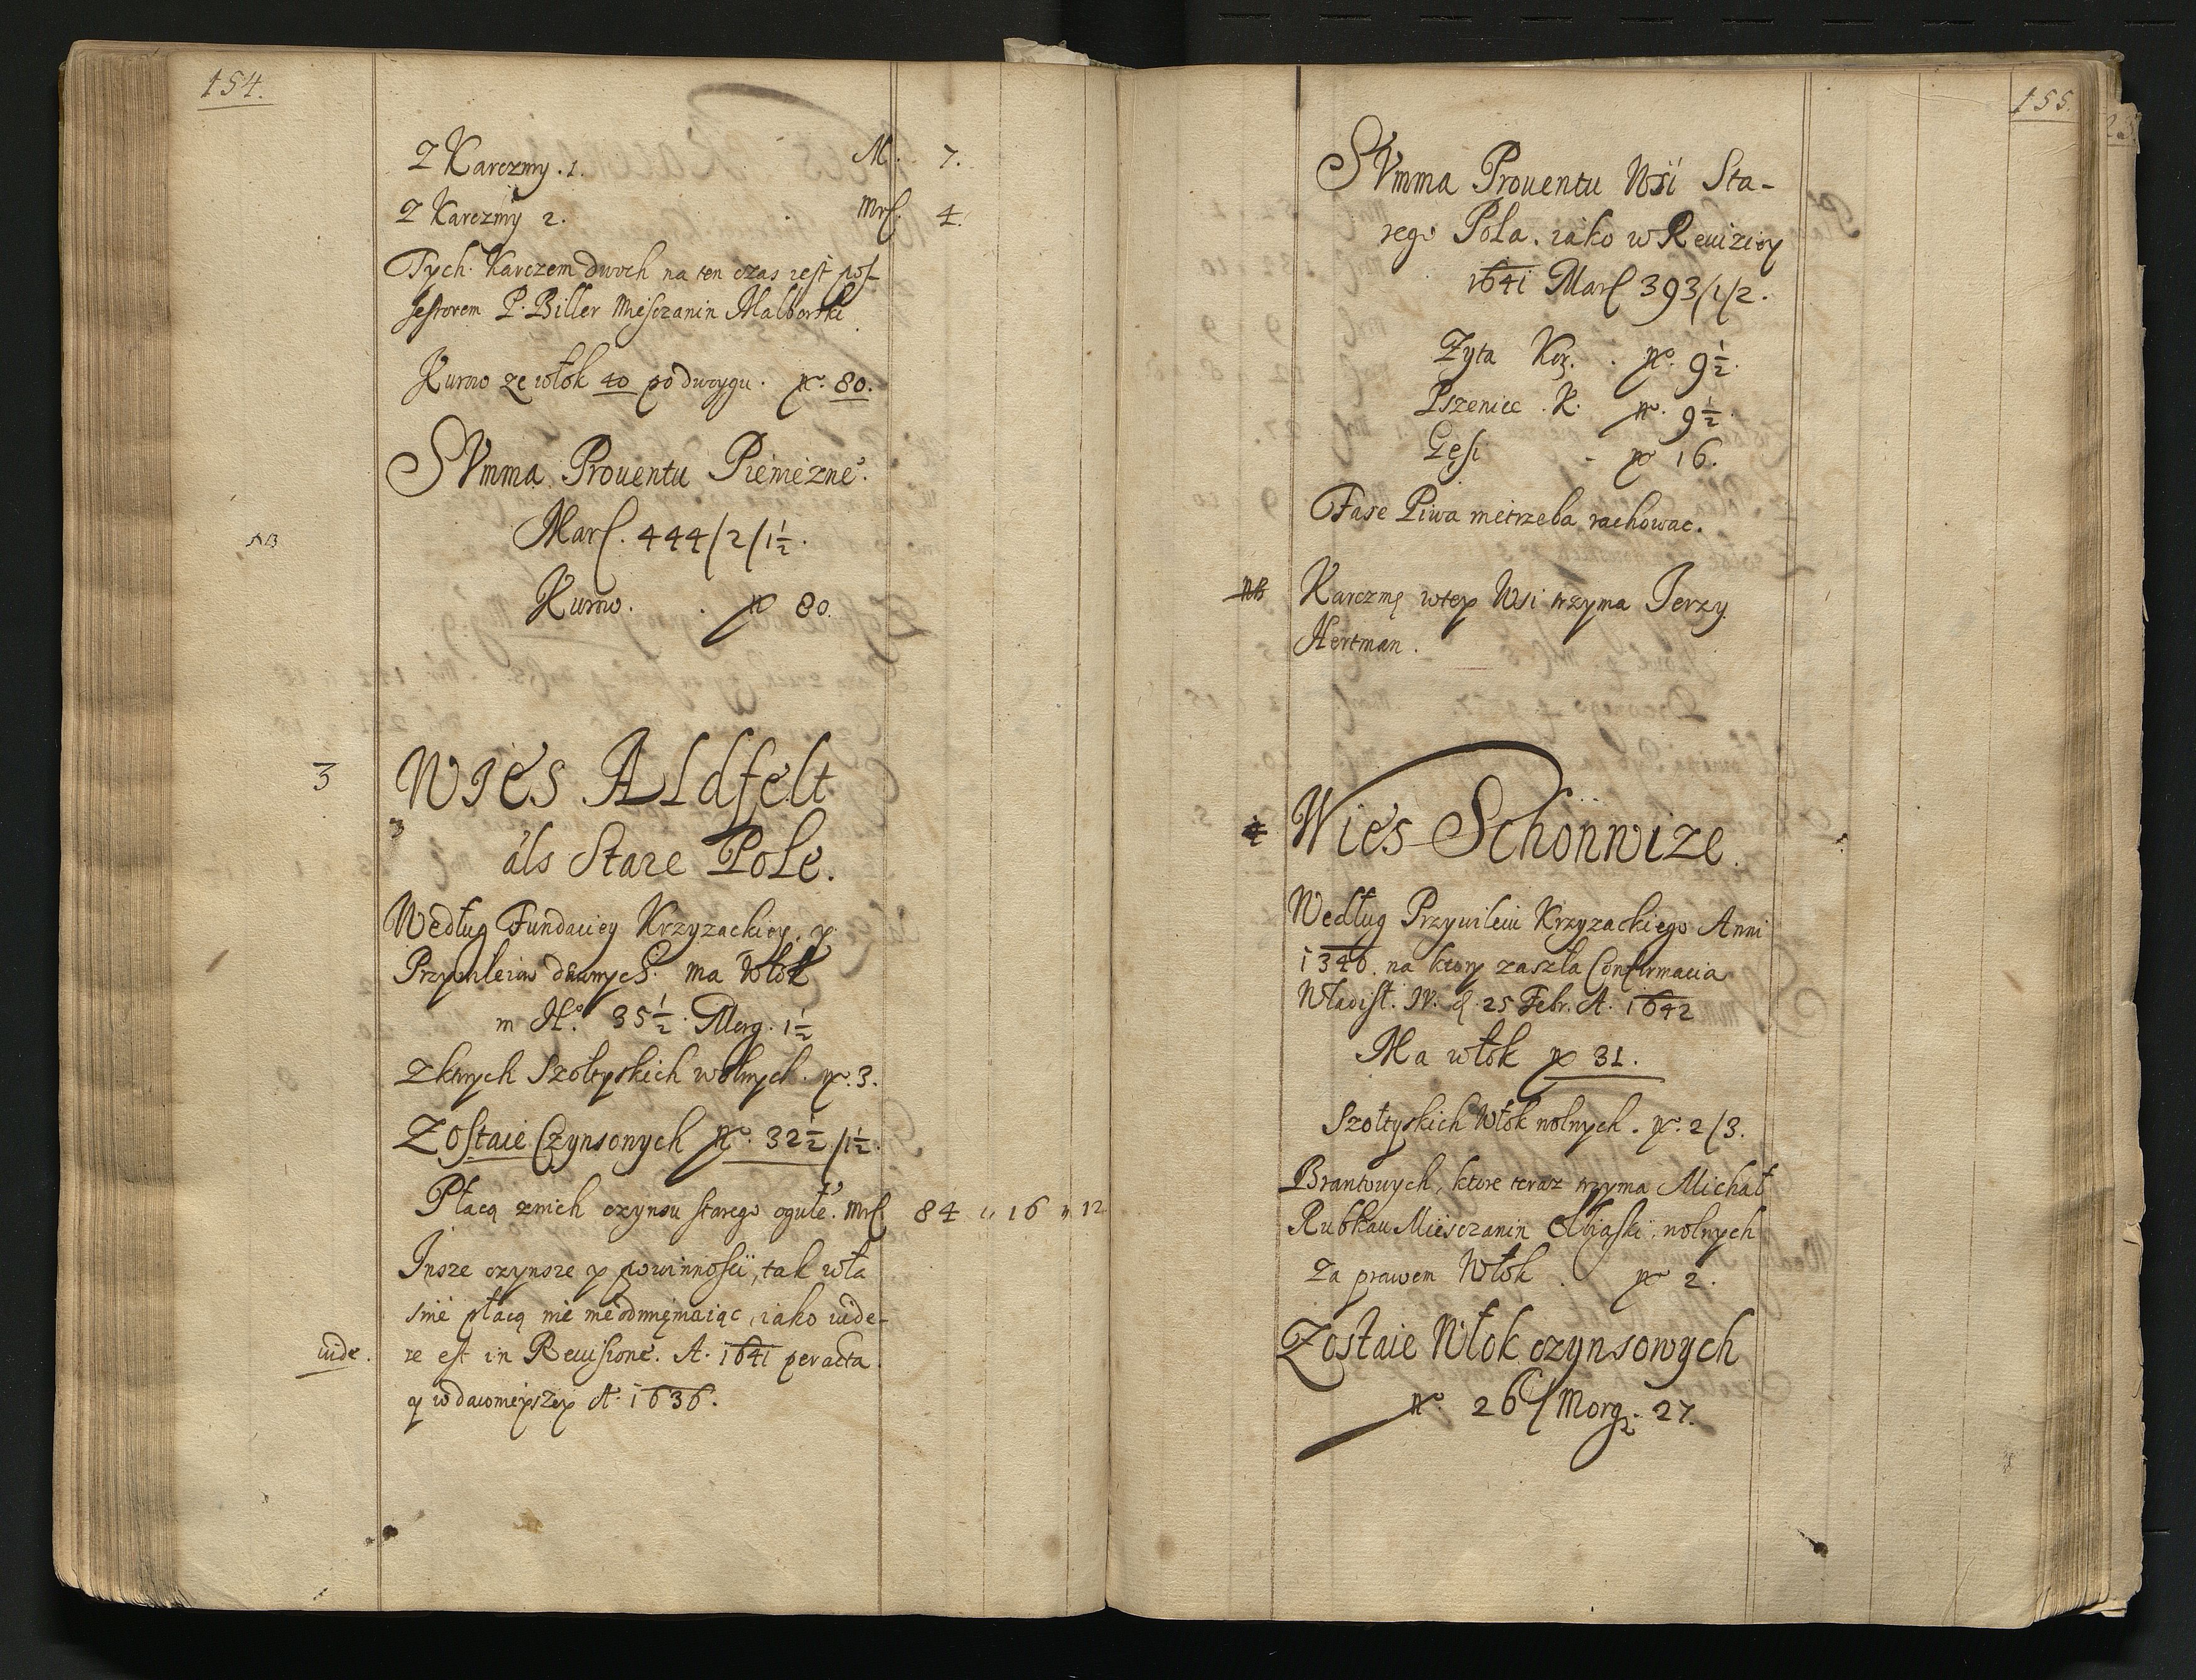 154.
Z Karczmy . 1. M. 7.
Z Karczmy 2. Mrſ. 4.
Tych Karczem dwoch na ten czas iest poſ-
ſeſsorem P. Biller Mieſczanin Malborſki
Kurow ze włok 40 po dwoygu. No. 80.
SVmma Prouentu Pieniężne.
NB
Marſ. 444/2/1½.
Kurow. No 80.
3
WIes ALdfelt
als Stare Pole.
Według Fundaciey Krzyzackiey, y
Przywileiow dawnych. ma Włok
in No. 35½. Morg. 1½
Z ktorych Szołtyskich wolnych. No. 3.
Zostaie Czynsonych No. 32½/1½.
Płacą z nich czynsu starego ogułe. Mrſ 84 " 16 " 12
Insze czynsze y powinnosci, tak wła
snie płacą nic nieodmieniaiąc, iako vide-
vide.
re est in Reuisione. A. 1641 peracta
y w dawnieyszey A. 1636.
155.
SVmma Prouentu Wsi Sta-
rego Pola. iako w Rewiziey
1641 Marſ 393/1/2.
Zyta Kor. . No. 9½.
Pszenice . K. No. 9½.
Gęsi - No 16.
Fase Piwa nietrzeba rachowac.
NB
Karczmę wtey Wsi trzyma Jerzy
Hertman.
4
Wies Schönnwize.
Według Przywileiu Krzyzackiego Anni
1346. na ktory zaszła Confirmacia
Władisł. IV. d. 25 Febr. A. 1642
Ma włok No 31.
Szołtyskich Włok wolnych. No. 2/3.
Brantowych, ktore teraz trzyma Michał
Rubkau Miesczanin Elbiąski, wolnych
Za prawem Włok . No 2.
Zostaie Włok czynsowych
No. 26/Morg. 27.